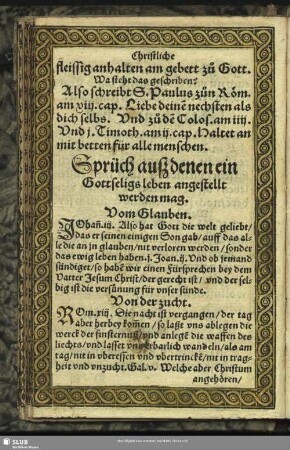 Christliche
fleissig anhalten am gebett zů Gott.
Wa steht das geschriben?
Also schreibt S. Paulus zůn Röm.
am xiij. cap. Liebe deinē nechsten als
dich selbs. Vnd zů dē Colos. am iiij.
Vnd j. Timoth. am ij. cap. Haltet an
mit betten für alle menschen.
Sprüch auß denen ein
Gottseligs leben angestellt
werden mag.
Vom Glauben.
JOhañ. iij. Also hat Gott die welt geliebt/
das er seinen einigen Son gab/ auff das al-
le die an jn glauben/ nit verloren werden/ sonder
das ewig leben haben. j. Joan. ij. Vnd ob jemand
sündiget/ so habē wir einen Fürsprechen bey dem
Vatter Jesum Christ/ der gerecht ist/ vnd der sel-
big ist die versünung für vnser sünde.
Von der zucht.
ROm. xiij. Die nacht ist vergangen/ der tag
aber herbey kom̃en/ so laßt vns ablegen die
werck der finsternuß/ vnd anlegē die waffen des
liechts/ vnd lasset vns erbarlich wandeln/ als am
tag/ nit in vberessen vnd vbertrinckē/ nit in
heit vnd vnzucht. Gal. v. Welche aber Christum
angehören/
SLUB